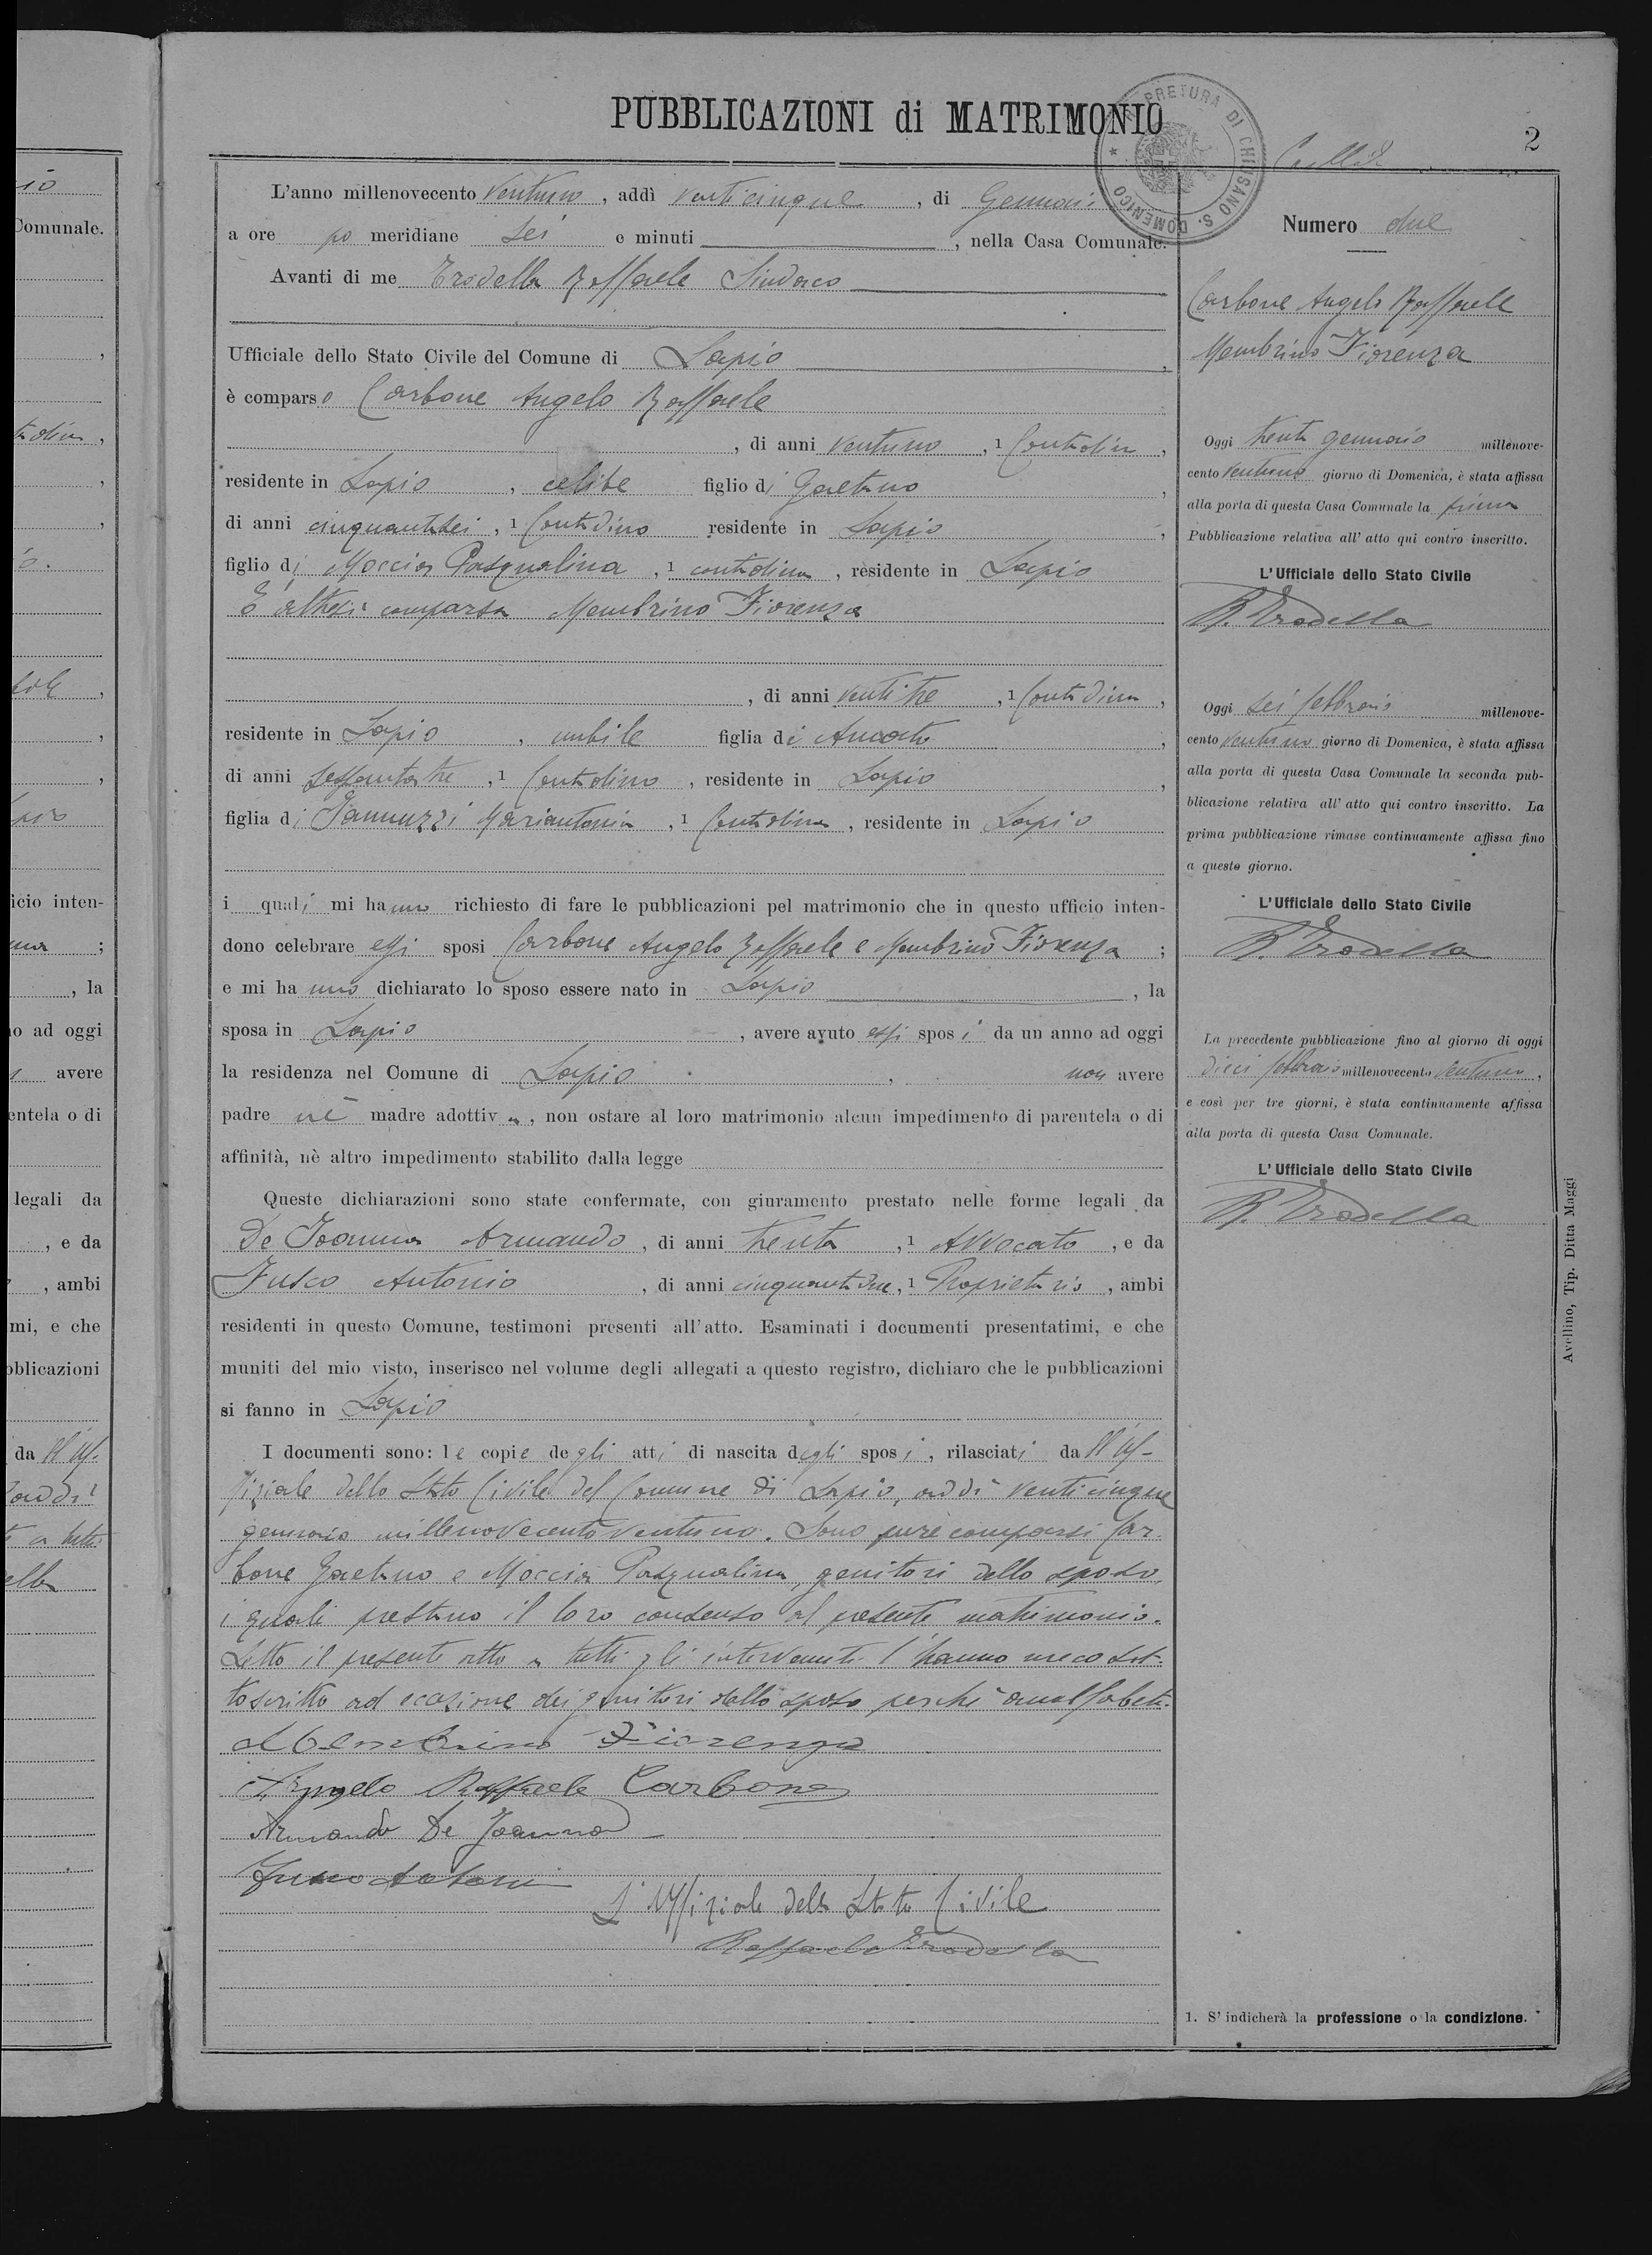 PUBBLICAZIONI di MATRIMONIO
PRETURA DI CHIUSANO S. DOMENICO
2
L'anno millenovecento ventuno, addì venticinque, di Gennaio
a ore po meridiane sei e minuti, nella Casa Comunale.
Avanti di me Trodella Raffaele Sindaco
Ufficiale dello Stato Civile del Comune di Lapio,
è comparso Carbone Angelo Raffaele
, di anni ventuno, 1 Contadino,
residente in Lapio, celibe figlio di Gaetano,
di anni cinquantasei, 1 Contadino residente in Lapio,
figlio di Moccia Pasqualina, 1 contadina, residente in Lapio
È altresì comparsa Membrino Fiorenza
, di anni ventitre, 1 Contadina,
residente in Lapio, nubile figlia di Amato,
di anni sessantatre, 1 Contadino, residente in Lapio,
figlia di Iannuzzi Mariantonia, 1 Contadina, residente in Lapio
i quali mi hanno richiesto di fare le pubblicazioni pel matrimonio che in questo ufficio inten-
dono celebrare essi sposi Carbone Angelo Raffaele e Membrino Fiorenza;
e mi hanno dichiarato lo sposo essere nato in Lapio, la
sposa in Lapio, avere avuto essi sposi da un anno ad oggi
la residenza nel Comune di Lapio, non avere
padre nè madre adottiva, non ostare al loro matrimonio alcun impedimento di parentela o di
affinità, nè altro impedimento stabilito dalla legge
Queste dichiarazioni sono state confermate, con giuramento prestato nelle forme legali da
De Joanna Armando, di anni trenta, 1 Avvocato, e da
Fusco Antonio, di anni cinquantadue, 1 Proprietario, ambi
residenti in questo Comune, testimoni presenti all'atto. Esaminati i documenti presentatimi, e che
muniti del mio visto, inserisco nel volume degli allegati a questo registro, dichiaro che le pubblicazioni
si fanno in Lapio
I documenti sono: le copie degli atti di nascita degli sposi, rilasciati dall'Uf-
fiziale dello Stato Civile del Comune di Lapio, addì venticinque
gennaio millenovecentoventuno. Sono pure comparsi Car-
bone Gaetano e Moccia Pasqualina, genitori dello sposo,
i quali prestano il loro consenso al presente matrimonio.
Letto il presente atto a tutti gli intervenuti l'hanno meco sot-
toscritto ad eccezione dei genitori dello sposo perchè analfabeti.
Membrino Fiorenza
Angelo Raffaele Carbone
Armando De Joanna
Fusco Antonio
L'Uffiziale dello Stato Civile
Raffaele Trodella
Numero due
Carbone Angelo Raffaele
Membrino Fiorenza
Oggi trenta gennaio millenove-
cento ventuno giorno di Domenica, è stata affissa
alla porta di questa Casa Comunale la prima
Pubblicazione relativa all'atto qui contro inscritto.
L'Ufficiale dello Stato Civile
R. Trodella
Oggi sei febbraio millenove-
cento ventuno giorno di Domenica, è stata affissa
alla porta di questa Casa Comunale la seconda pub-
blicazione relativa all'atto qui contro inscritto. La
prima pubblicazione rimase continuamente affissa fino
a questo giorno.
L'Ufficiale dello Stato Civile
R. Trodella
La precedente pubblicazione fino al giorno di oggi
dieci febbraio millenovecento ventuno,
e così per tre giorni, è stata continuamente affissa
alla porta di questa Casa Comunale.
L'Ufficiale dello Stato Civile
R. Trodella
1. S'indicherà la professione o la condizione.
Avellino, Tip. Ditta Maggi
Comunale.
icio inten-
, la
o ad oggi
avere
entela o di
legali da
, e da
, ambi
mi, e che
bblicazioni
da ll'Uf-